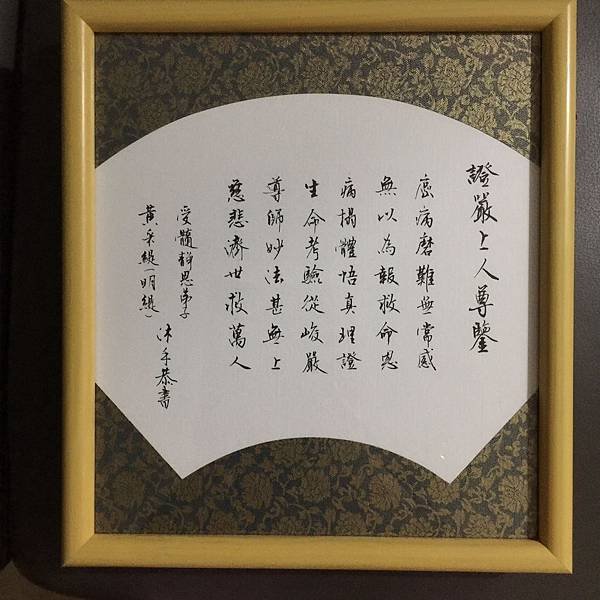 證嚴上人尊鑒
癌病磨難無常感
無以為報救命恩
病榻體悟真理證
生命考驗從峻嚴
尊師妙法甚無上
慈悲濟世救萬人
受髓靜思弟子
黃采緹(明緹)
沐手恭書